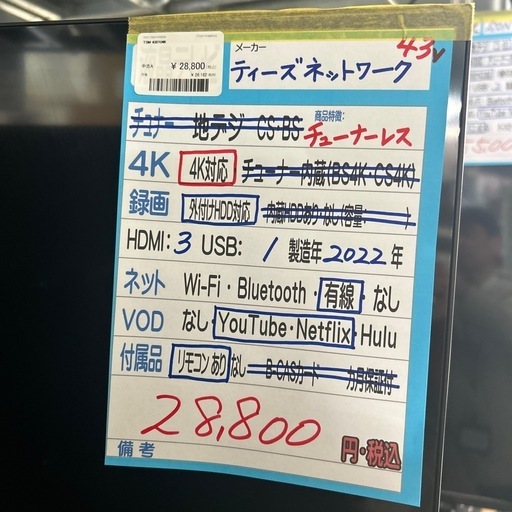 ¥ 28,800
メーカー 43v
ティーズネットワーク
チュナー 地デジ CS・BS 商品特徴: チューナーレス
4K 4K対応 チューナー内蔵(BS4K・CS4K)
録画 外付けHDD対応 内蔵HDDあり・なし(容量: )
HDMI: 3 USB: 1 製造年2022年
ネット Wi-Fi・Bluetooth・有線・なし
VOD なし・YouTube・Netflix・Hulu
付属品 リモコンあり なし B-CASカード カ月保証付
28,800 円・税込
備考